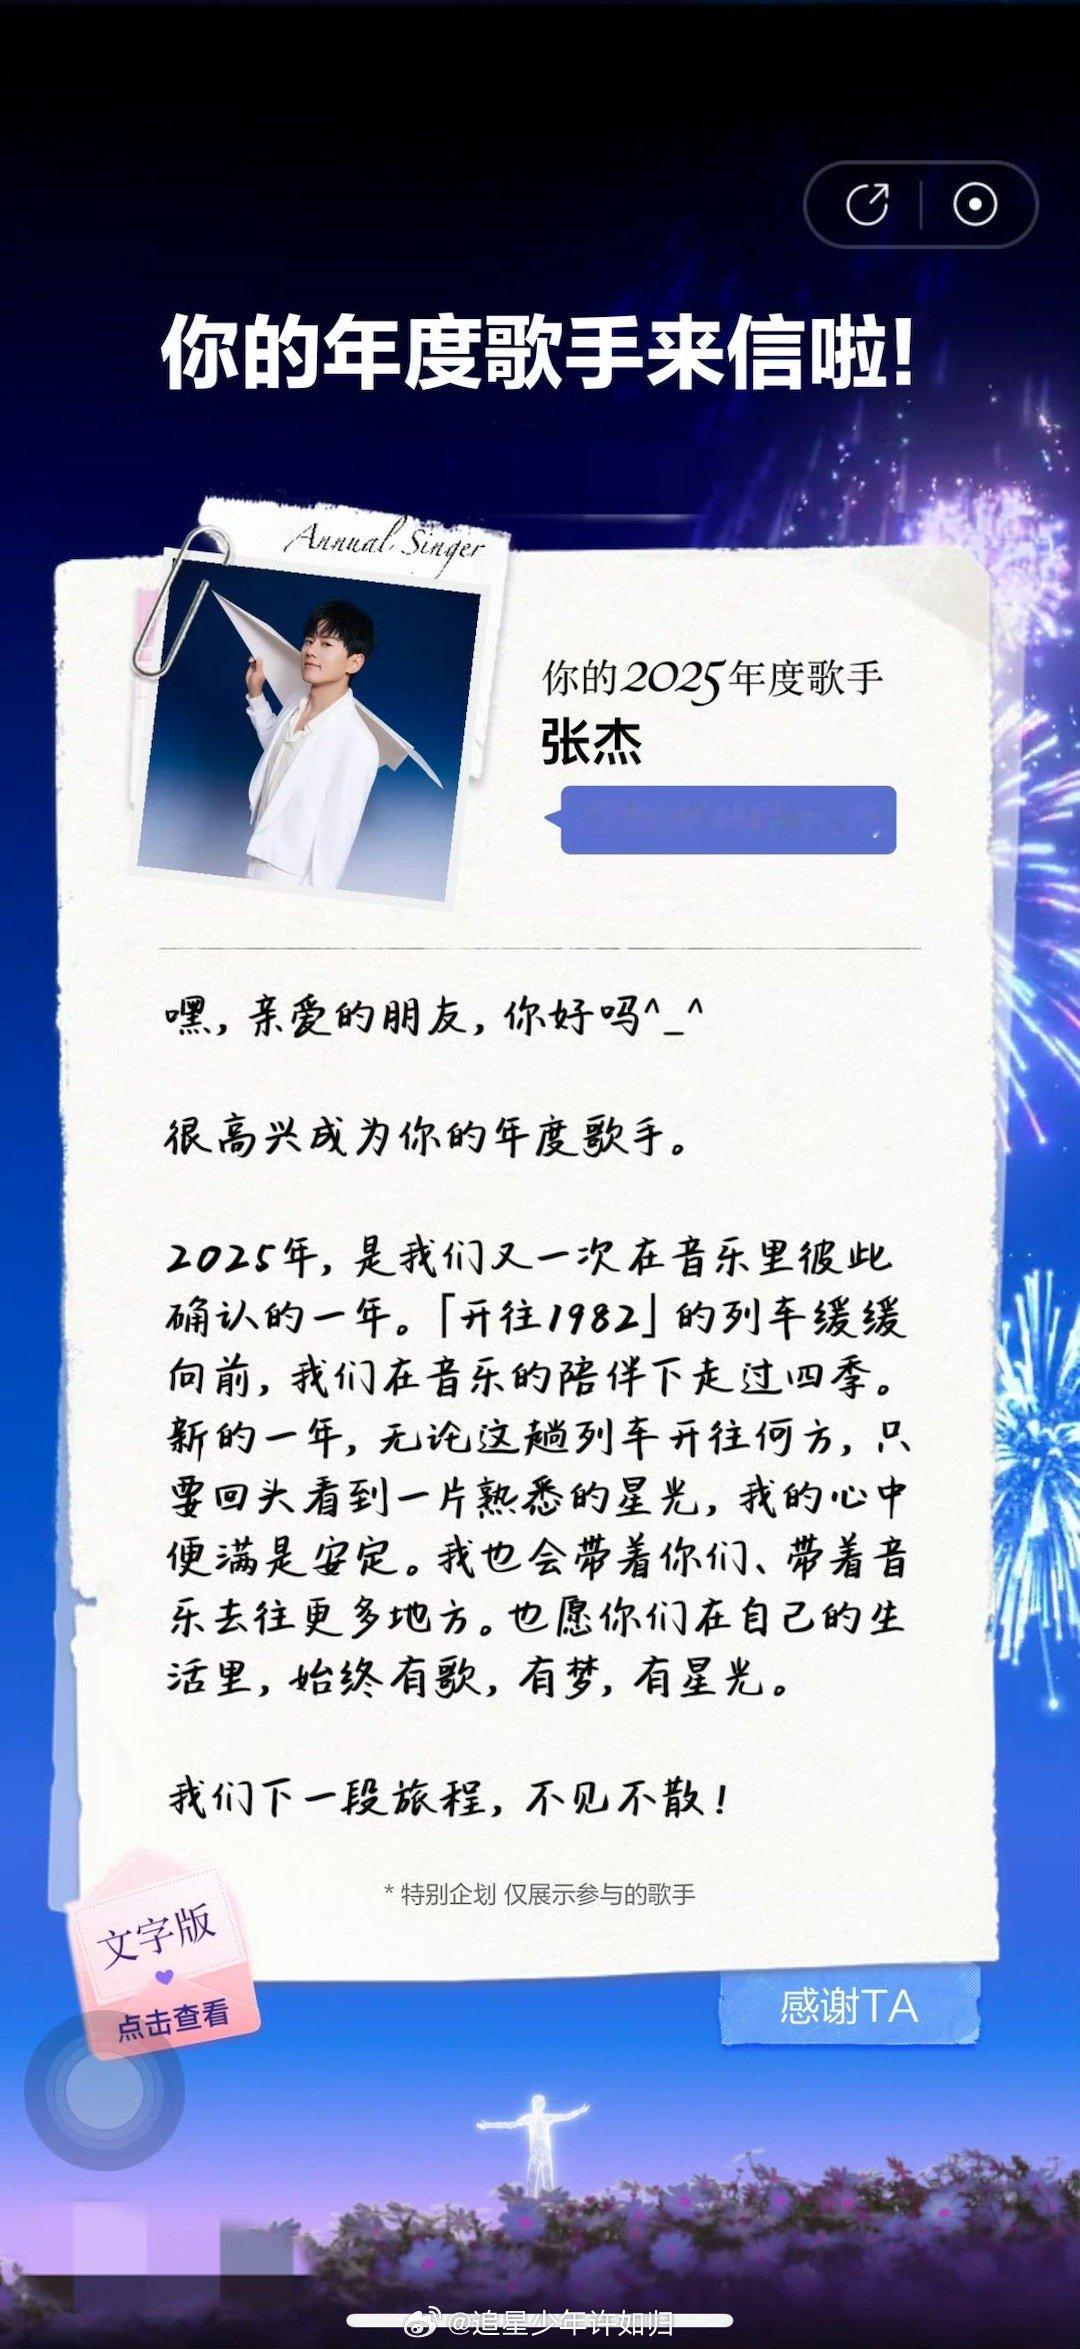 你的年度歌手来信啦!
Annual Singer
你的2025年度歌手
张杰
嘿，亲爱的朋友，你好吗^_^
很高兴成为你的年度歌手。
2025年，是我们又一次在音乐里彼此
确认的一年。「开往1982」的列车缓缓
向前，我们在音乐的陪伴下走过四季。
新的一年，无论这趟列车开往何方，只
要回头看到一片熟悉的星光，我的心中
便满是安定。我也会带着你们、带着音
乐去往更多地方。也愿你们在自己的生
活里，始终有歌，有梦，有星光。
我们下一段旅程，不见不散！
*特别企划 仅展示参与的歌手
文字版
点击查看
感谢TA
@追星少年许如归